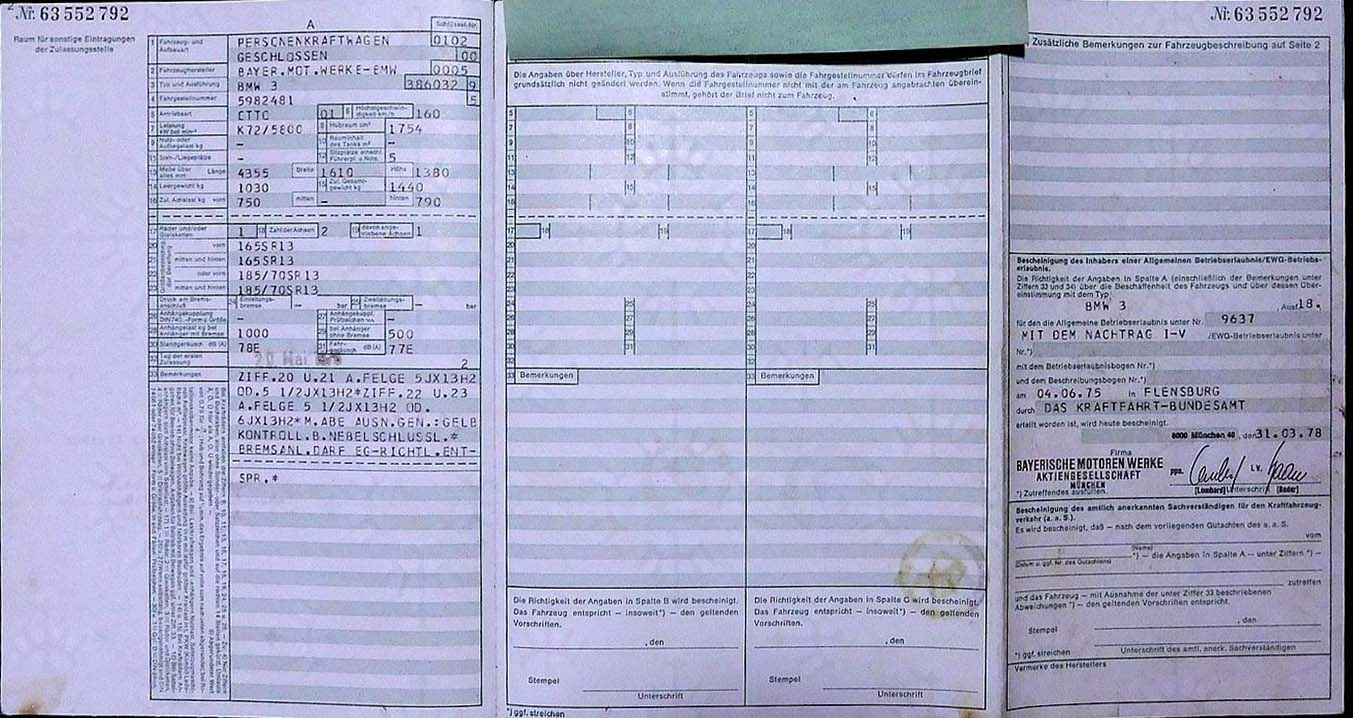 Nr. 63 552 792
Raum für sonstige Eintragungen
der Zulassungsstelle
A
Schlüssel-Nr.
1 Fahrzeug- und Aufbauart PERSONENKRAFTWAGEN 0102
GESCHLOSSEN 00
2 Fahrzeughersteller BAYER.MOT.WERKE-BMW 0005
3 Typ und Ausführung BMW 3 386032 9
4 Fahrgestellnummer 5982481 5
5 Antriebsart OTTO 01 6 Höchstgeschwindigkeit km/h 160
7 Leistung kW bei min⁻¹ K72/5800 8 Hubraum cm³ 1754
9 Nutz- oder Aufliegelast kg – 10 Rauminhalt des Tanks m³ –
11 Steh-/Liegeplätze – 12 Sitzplätze einschl. Führerpl. u. Nots. 5
13 Maße über alles mm Länge 4355 Breite 1610 Höhe 1380
14 Leergewicht kg 1030 15 Zul. Gesamtgewicht kg 1440
16 Zul. Achslast kg vorn 750 mitten – hinten 790
17 Räder und/oder Gleisketten 1 18 Zahl der Achsen 2 19 davon angetriebene Achsen 1
20 vorn 165SR13
21 mitten und hinten 165SR13
22 oder vorn 185/70SR13
23 mitten und hinten 185/70SR13
Druck am Bremsanschluß 24 Einleitungsbremse – bar 25 Zweileitungsbremse – bar
26 Anhängekupplung DIN 740.. -Form u. Größe – 27 Anhängekuppl. Prüfzeichen –
28 Anhängelast kg bei Anhänger mit Bremse 1000 29 bei Anhänger ohne Bremse 500
30 Standgeräusch dB (A) 78E 31 Fahrgeräusch dB (A) 77E
32 Tag der ersten Zulassung 20 Mai 2
33 Bemerkungen ZIFF.20 U.21 A.FELGE 5JX13H2
OD.5 1/2JX13H2*ZIFF.22 U.23
A.FELGE 5 1/2JX13H2 OD.
6JX13H2*M.ABE AUSN.GEN.:GELB
KONTROLL.B.NEBELSCHLUSSL.*
BREMSANL.DARF EG-RICHTL.ENT-
SPR.*
Die Angaben über Hersteller, Typ und Ausführung des Fahrzeugs sowie die Fahrgestellnummer dürfen im Fahrzeugbrief
grundsätzlich nicht geändert werden. Wenn die Fahrgestellnummer nicht mit der am Fahrzeug angebrachten überein-
stimmt, gehört der Brief nicht zum Fahrzeug.
5 6 5 6
7 8 7 8
9 10 9 10
11 12 11 12
13 13
14 15 14 15
16 16
17 18 19 17 18 19
20 20
21 21
22 22
23 23
24 25 24 25
26 27 26 27
28 29 28 29
30 31 30 31
32 32
33 Bemerkungen 33 Bemerkungen
Die Richtigkeit der Angaben in Spalte B wird bescheinigt.
Das Fahrzeug entspricht – insoweit*) – den geltenden
Vorschriften.
, den
Stempel
Unterschrift
*) ggf. streichen
Die Richtigkeit der Angaben in Spalte C wird bescheinigt.
Das Fahrzeug entspricht – insoweit*) – den geltenden
Vorschriften.
, den
Stempel
Unterschrift
Nr. 63 552 792
Zusätzliche Bemerkungen zur Fahrzeugbeschreibung auf Seite 2
Bescheinigung des Inhabers einer Allgemeinen Betriebserlaubnis/EWG-Betriebs-
erlaubnis.
Die Richtigkeit der Angaben in Spalte A (einschließlich der Bemerkungen unter
Ziffern 33 und 34) über die Beschaffenheit des Fahrzeugs und über dessen Über-
einstimmung mit dem Typ:
BMW 3 , Ausf. 18.
für den die Allgemeine Betriebserlaubnis unter Nr. 9637
MIT DEM NACHTRAG I-V /EWG-Betriebserlaubnis unter
Nr.*)
mit dem Betriebserlaubnisbogen Nr.*)
und dem Beschreibungsbogen Nr.*)
am 04.06.75 in FLENSBURG
durch DAS KRAFTFAHRT-BUNDESAMT
erteilt worden ist, wird heute bescheinigt.
8000 München 40 , den 31.03.78
Firma
BAYERISCHE MOTOREN WERKE
AKTIENGESELLSCHAFT
MÜNCHEN
ppa. i.V.
Unterschrift (Bader)
*) Zutreffendes ausfüllen.
Bescheinigung des amtlich anerkannten Sachverständigen für den Kraftfahrzeug-
verkehr (a. a. S.).
Es wird bescheinigt, daß – nach dem vorliegenden Gutachten des a. a. S.
vom
(Name)
*) – die Angaben in Spalte A – unter Ziffern *) –
(Datum u. ggf. Nr. des Gutachtens)
zutreffen
und das Fahrzeug – mit Ausnahme der unter Ziffer 33 beschriebenen
Abweichungen *) – den geltenden Vorschriften entspricht.
, den
Stempel
*) ggf. streichen
Unterschrift des amtl. anerk. Sachverständigen
Vermerke des Herstellers